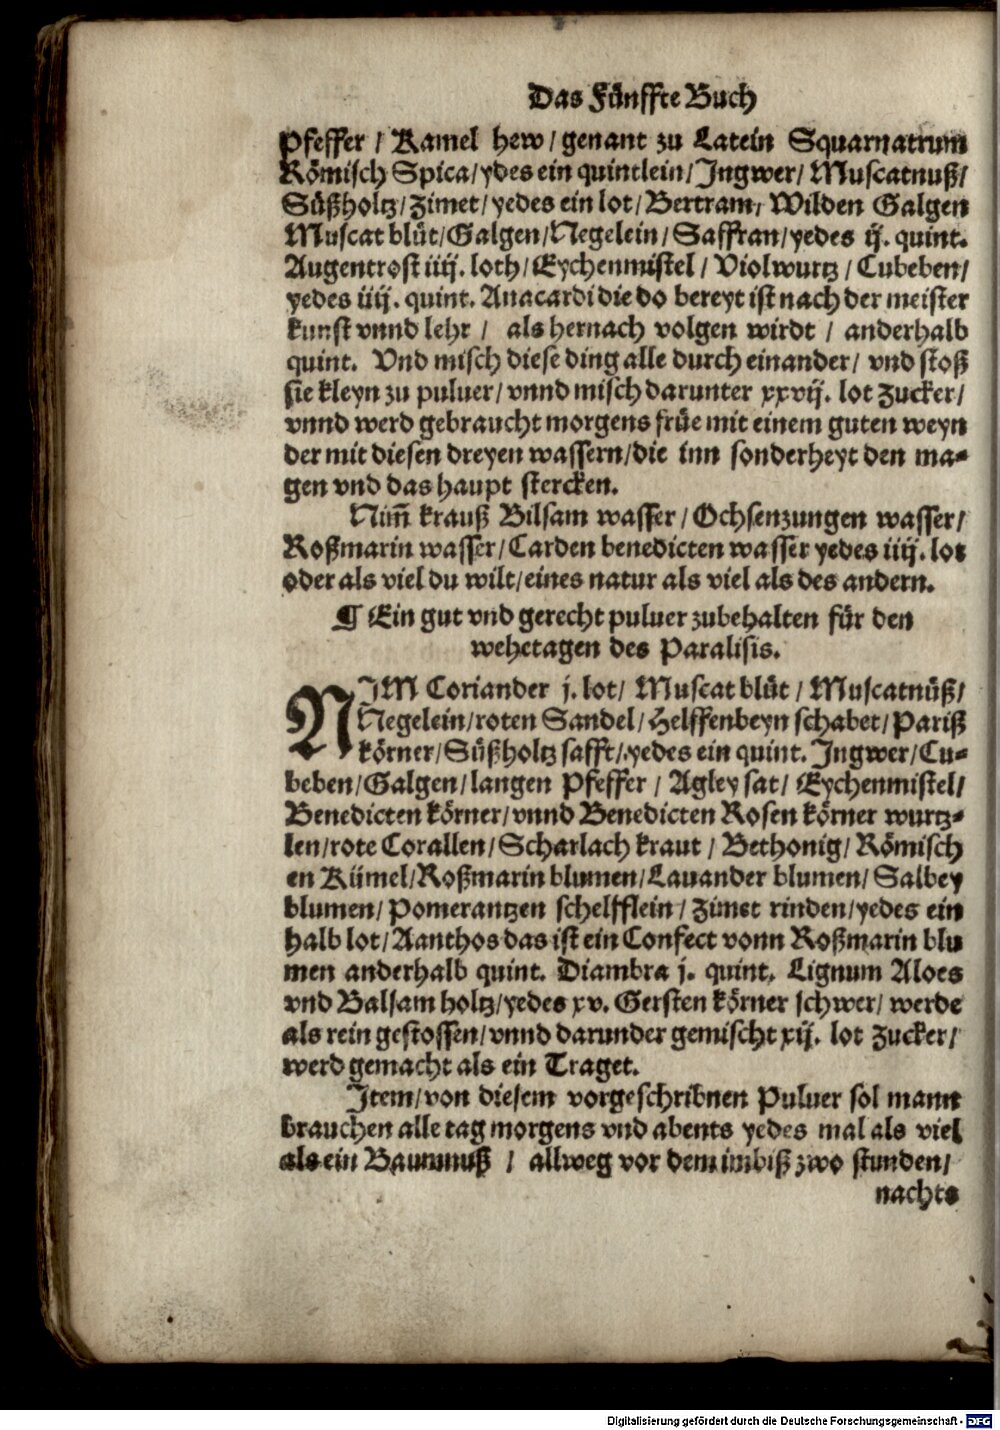 Das Fünffte Buch
Pfeffer / Kamel hew / genant zu Latein Squarnatrum
Römisch Spica / ydes ein quintlein / Jngwer / Muscatnuß /
Süßholtz / Zimet / yedes ein lot / Bertram / Wilden Galgen
Muscat blüt / Galgen / Negelein / Saffran / yedes ij. quint.
Augentrost iiij. loth / Eychenmistel / Violwurtz / Cubeben /
yedes iiij. quint. Anacardi die do bereyt ist nach der meister
kunst vnnd lehr / als hernach volgen wirdt / anderhalb
quint. Vnd misch diese ding alle durch einander / vnd stoß
sie kleyn zu puluer / vnnd misch darunter xxvij. lot Zucker /
vnnd werd gebraucht morgens früe mit einem guten weyn
der mit diesen dreyen wassern / die inn sonderheyt den ma-
gen vnd das haupt stercken.
Nim̃ krauß Bilsam wasser / Ochsenzungen wasser /
Roßmarin wasser / Carden benedicten wasser yedes iiij. lot
oder als viel du wilt / eines natur als viel als des andern.
¶ Ein gut vnd gerecht puluer zubehalten für den
wehetagen des Paralisis.
NJM Coriander j. lot / Muscat blüt / Muscatnüß /
Negelein / roten Sandel / Helffenbeyn schabet / Pariß
körner / Süßholtz safft / yedes ein quint. Jngwer / Cu-
beben / Galgen / langen Pfeffer / Agley sat / Eychenmistel /
Benedicten körner / vnnd Benedicten Rosen körner wurtz-
len / rote Corallen / Scharlach kraut / Bethonig / Römisch
en Kümel / Roßmarin blumen / Lauander blumen / Salbey
blumen / Pomerantzen schelfflein / Zimet rinden / yedes ein
halb lot / Aanthos das ist ein Confect vonn Roßmarin blu
men anderhalb quint. Diambra j. quint. Lignum Aloes
vnd Balsam holtz / yedes xv. Gersten körner schwer / werde
als rein gestossen / vnnd darunder gemischt xij. lot Zucker /
werd gemacht als ein Traget.
Jtem / von diesem vorgeschribnen Puluer sol mann
brauchen alle tag morgens vnd abents yedes mal als viel
als ein Baumnuß / allweg vor dem imbiß zwo stunden /
nachts
Digitalisierung gefördert durch die Deutsche Forschungsgemeinschaft - DFG